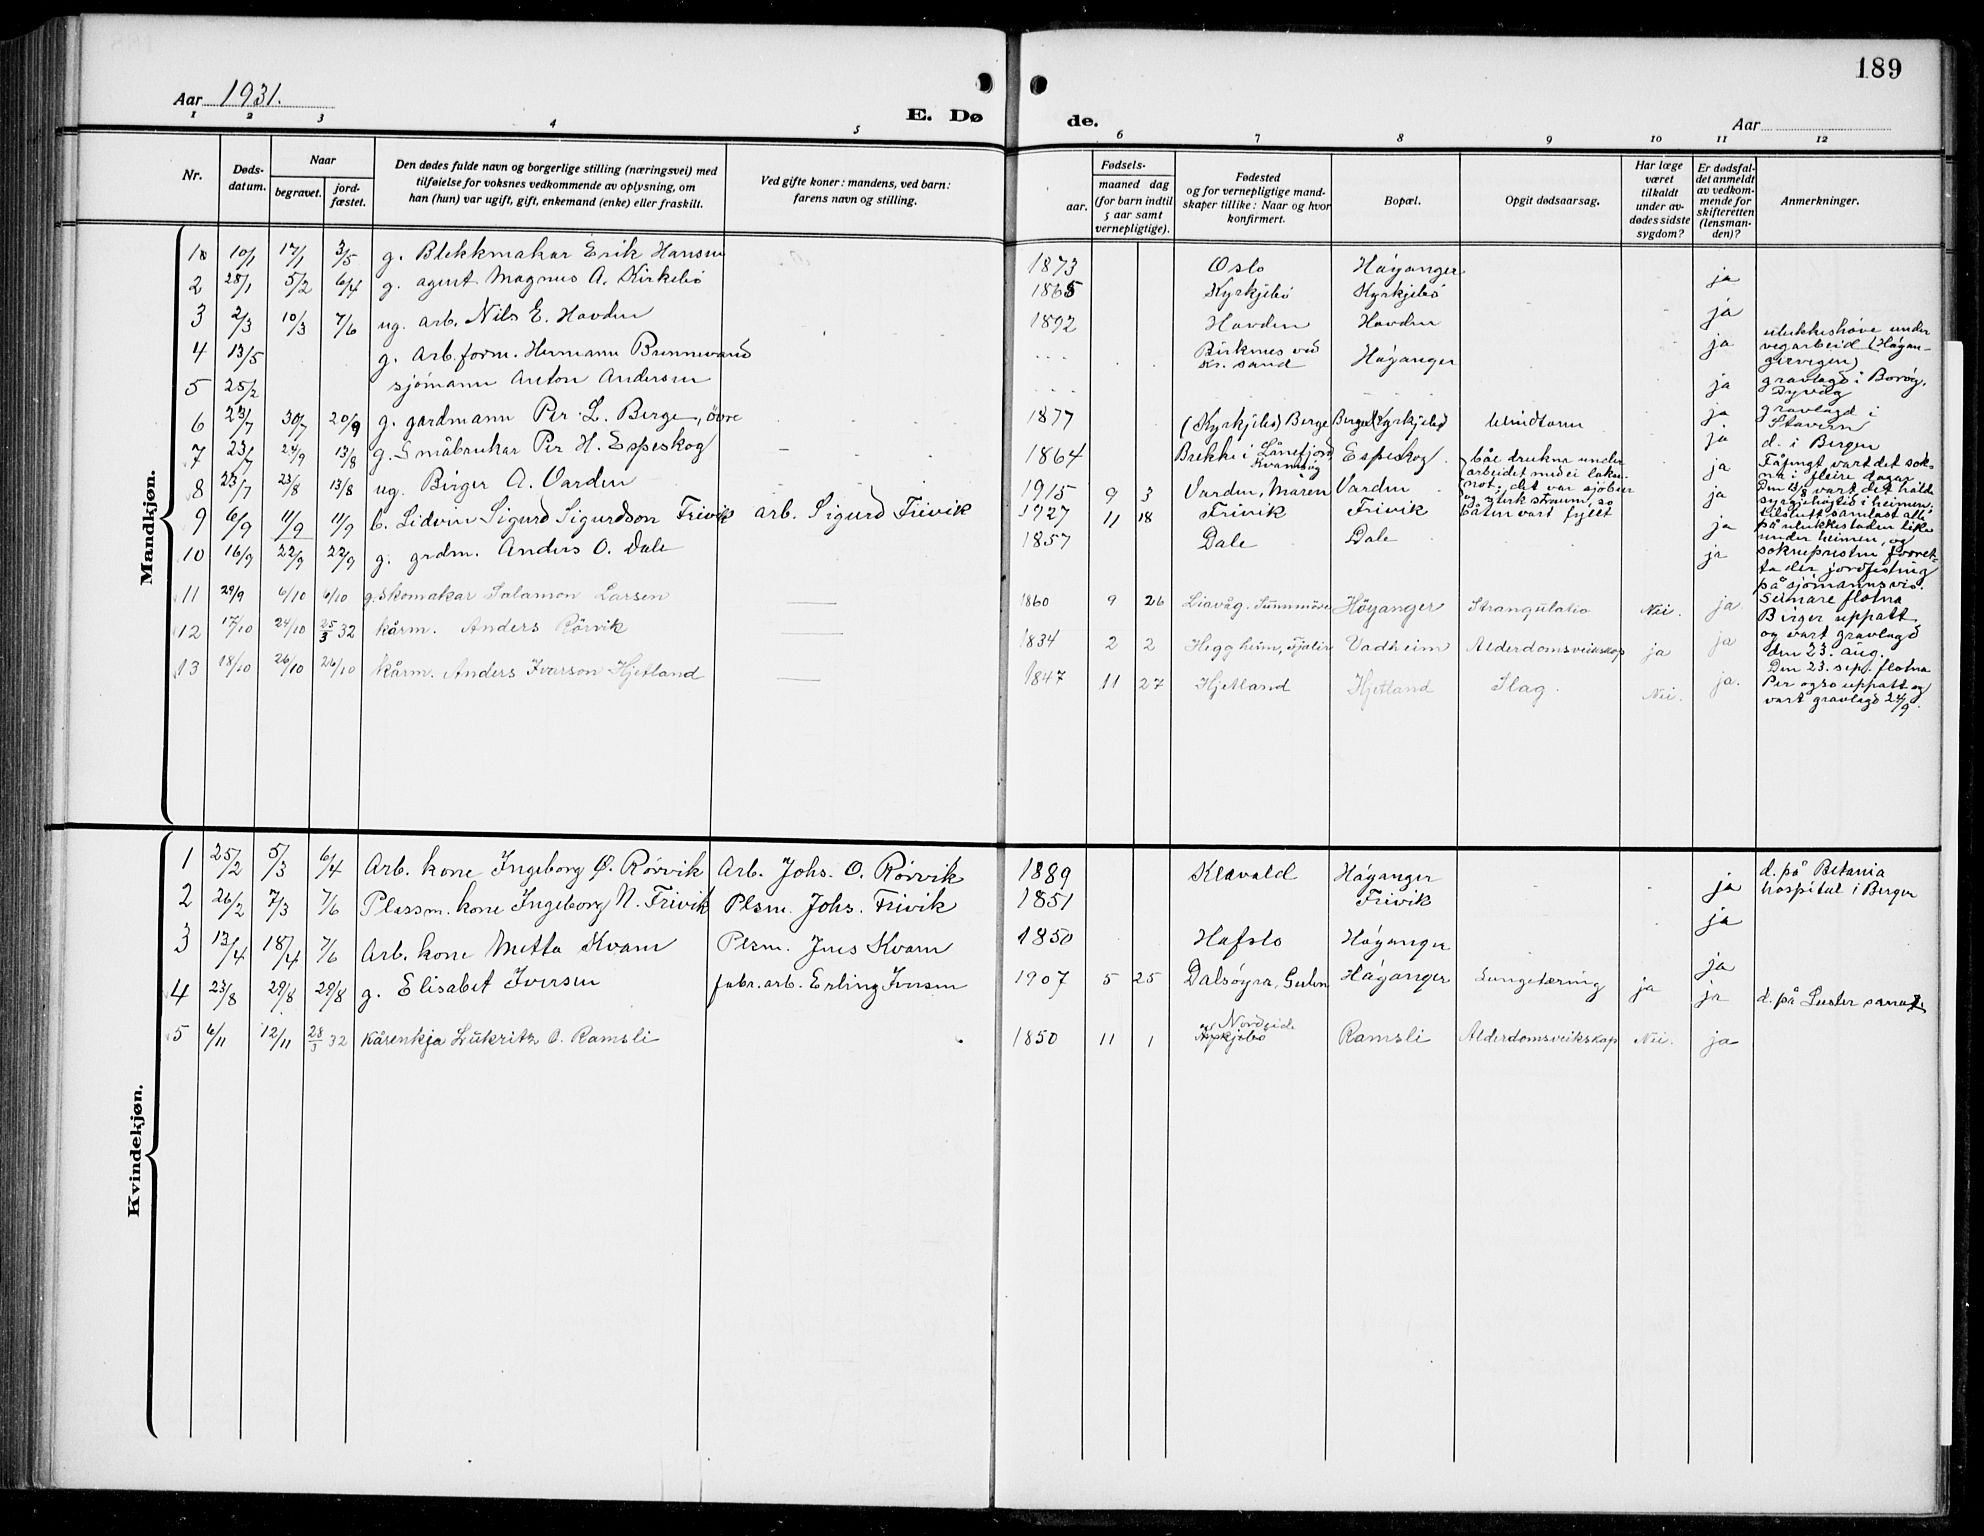 189
Aar 1931.
E. Døde.
Aar
1 2 3 4 5 6 7 8 9 10 11 12
Nr.
Døds-
datum.
Naar
begravet.
jord-
fæstet.
Den dødes fulde navn og borgerlige stilling (næringsvei) med
tilføielse for voksnes vedkommende av oplysning, om
han (hun) var ugift, gift, enkemand (enke) eller fraskilt.
Ved gifte koner: mandens, ved barn:
farens navn og stilling.
Fødsels-
aar.
maaned dag
(for barn indtil
5 aar samt
vernepligtige).
Fødested
og for vernepligtige mand-
skaper tillike: Naar og hvor
konfirmert.
Bopæl.
Opgit dødsaarsag.
Har læge
været
tilkaldt
under av-
dødes sidste
sygdom?
Er dødsfal-
det anmeldt
av vedkom-
mende for
skifteretten
(lensman-
den)?
Anmerkninger.
Mandkjøn.
1 10/1 17/1 3/5 g. Blekkmakar Erik Hansen 1873 Oslo Høyanger ja
2 28/1 5/2 6/4 g. agent Magnus A. Kirkebø 1865 Kyrkjebø Kyrkjebø ja
3 2/3 10/3 7/6 ug. arb. Nils E. Hovden 1892 Hovden Hovden ja
4 13/5 g. Arb.form. Hermann Brennevand Birknes ved Kr. sand Høyanger ja
5 25/2 sjømann Anton Andersen ja
6 23/7 30/7 20/9 g. gardmann Per L. Berge, øvre 1877 (Kyrkjebø) Berge Berge Kyrkjebø ja
7 23/7 24/9 13/8 g. Småbrukar Per H. Espeskog 1864 Brekke i Lånefjord Espeskog ja
8 23/7 23/8 13/8 ug. Birger A. Varden 1915 9 3 Varden, Måren Varden ja
9 6/9 11/9 11/9 b. Lidvin Sigurd Sigurdson Trivik arb. Sigurd Trivik 1927 11 18 Trivik Trivik ja
10 16/9 22/9 22/9 g. grdm. Anders O. Dale 1857 Dale Dale ja
11 29/9 6/10 6/10 g. Skomakar Salamon Larsen 1860 9 26 Liavåg, Sunnmøre Høyanger Strangulatio Nei. ja.
12 17/10 24/10 25/3 32 kårm. Anders Rørvik 1834 2 2 Heggheim, Fjaler Vadheim Alderdomsveikskap ja ja
13 18/10 26/10 26/10 kårm. Anders Ivarson Hjetland 1847 11 27 Hjetland Hjetland Slag. Nei. ja.
båe drukna under
arbeidet med ei lakse-
not; det var
og sterk straum, so
båten vart fyllt
ulukkeshøve under
vegarbeid (Høyan-
gervegen)
gravlagd i Borøy,
Dyvåg
gravlagd i
Stavern
d. i Bergen
Fåfengt vart det sok-
na i fleire dagar
Den 13/8 vart det halde
syrgjehøgtid i heimen;
tilslutt samlast alle
på ulukkestaden like
under heimen, og
soknepresten forret-
ta der jordfesting
på sjømannsvis.
Seinare flotna
Birger uppatt
og vart gravlagd
den 23. aug.
Den 23. sep. flotna
Per ogso uppatt og
vart gravlagd 24/9.
Kvindekjøn.
1 25/2 5/3 6/4 Arb. kone Ingeborg Ø. Rørvik Arb. Johs. O. Rørvik 1889 Klævold Høyanger ja d. på Betania
hospital i Bergen
2 26/2 7/3 7/6 Plassm. kone Ingeborg N. Trivik Plsm. Johs. Trivik 1851 Trivik ja
3 13/4 18/4 7/6 Arb. kone Metta Kvam Plsm. Jens Kvam 1850 Hafslo Høyanger ja
4 23/8 29/8 29/8 g. Elisabet Iversen fabr. arb. Erling Iversen 1907 5 25 Dalsøyra, Gulen Høyanger Lungetæring ja ja d. på Luster
5 6/11 12/11 28/3 32 Kårenkja Lukritz O. Ramsli 1850 11 1 Nordeide
Kyrkjebø Ramsli Alderdomsveikskap Nei. ja